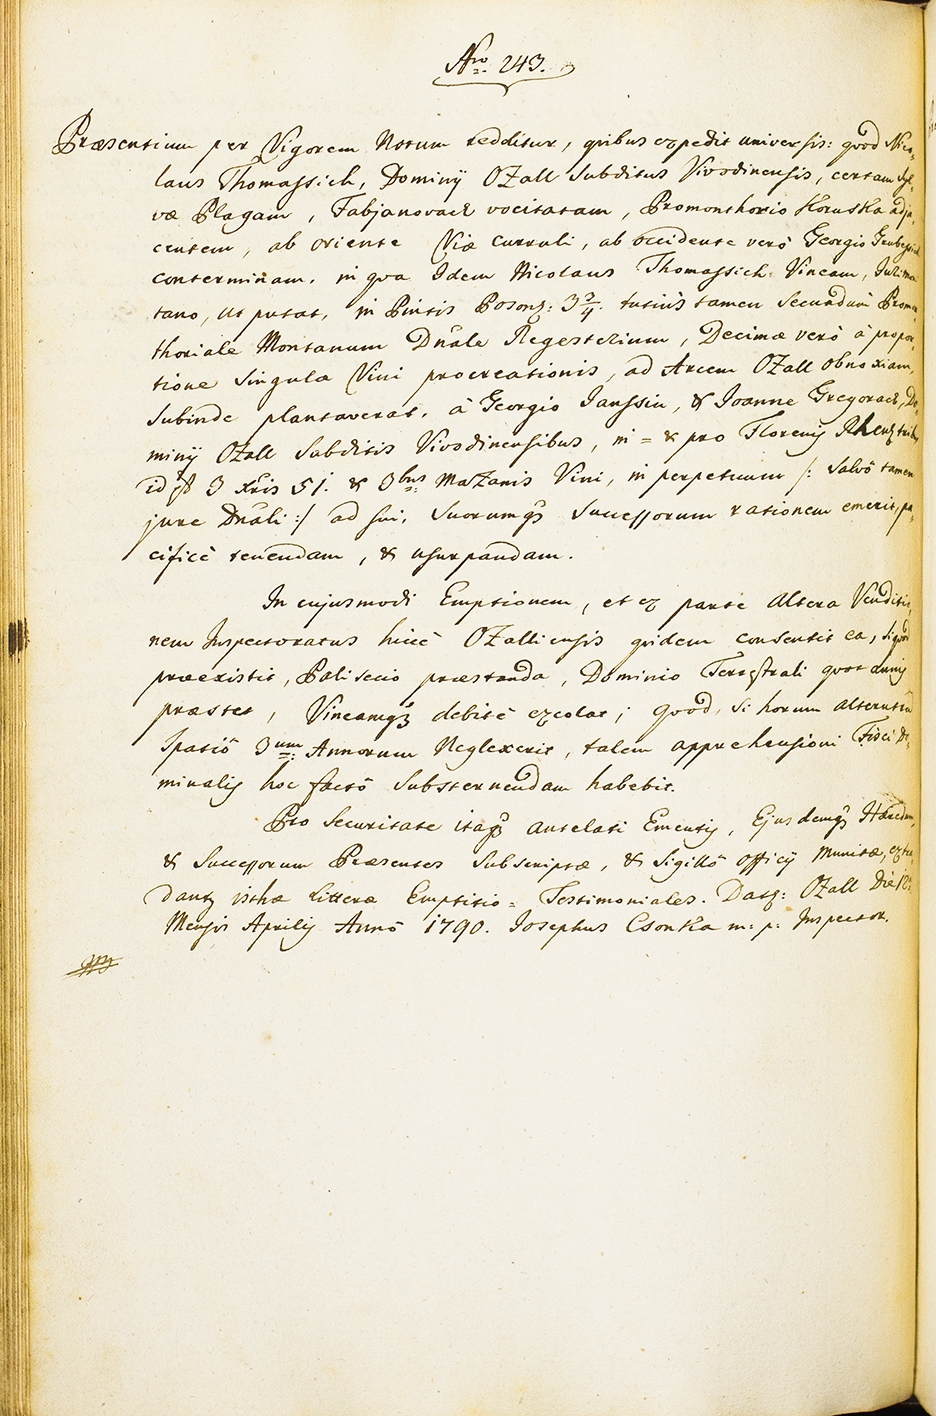 Nro. 243.
Præsentium per Vigorem Notum redditur, quibus expedit universis: quod Nico-
laus Thomassich, Dominij Ozall Subditus Vivodinensis, certam Syl-
væ Plagam, Fabjanovach vocitatam, Promonthorio Koruska adja-
centem, ab oriente Viæ currali, ab occidente verò Georgio
conterminam, in qva Idem Nicolaus Thomassich Vineam,
tano, ut putat, in Pintis Posonq: 3 3/4. tutiùs tamen Secundùm Promon-
thoriale Montanum Dnale Regesterium, Decimæ verò à propor-
tione Singulæ Vini procreationis, ad Arcem Ozall obnoxiam,
Subinde plantaverat, à Georgio Janssin, & Joanne Gregorach, Do-
minij Ozall Subditis Vivodinensibus, in = & pro Florenis Rhenq tribus,
id est 3 Xris 51. & 3bus Mazanis Vini, in perpetuum /: Salvô tamen
jure Dnali :/ ad sui, Suorumq3 Successorum rationem emerit, pa-
cificè tenendam, & usurpandam.
In cujusmodi Emptionem, et ex parte altera Venditio-
nem Inspectoratus hicce Ozalliensis qvidem consentit ea, si qvod
præexistit, Palisecio præstanda, Dominio Terrestrali quot annis
præstet, Vineamq3 debitè excolat; Quod, si horum alterutrum
Spatiô 3um: Annorum Neglexerit, talem apprehensioni Fisci Do-
minalis hoc factô Substernendam habebit.
Pro Securitate itaq3 antelati Ementis, Ejusdemq3 Hæredum,
& Successorum Præsentes Subscriptæ, & Sigillô officij Munitæ, extra-
dantq isthæ Litteræ Emptitio = Testimoniales. Datq: Ozall Die
Mensis Aprilis Annô 1790. Josephus Csonka m: p: Inspector.